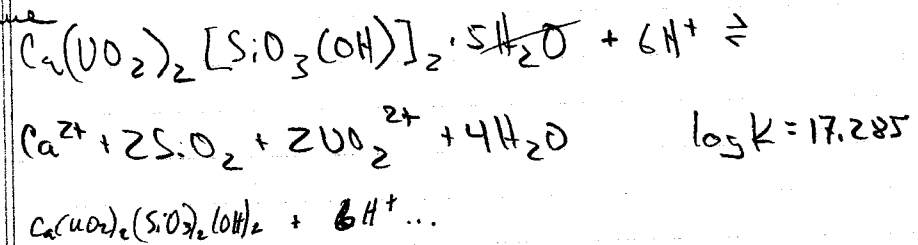 Ca(UO₂)₂[SiO₃(OH)]₂·5H₂O + 6H⁺ ⇌
Ca²⁺ + 2SiO₂ + 2UO₂²⁺ + 4H₂O log K = 17.285
Ca(UO₂)₂(SiO₃)₂(OH)₂ + 6H⁺ ...